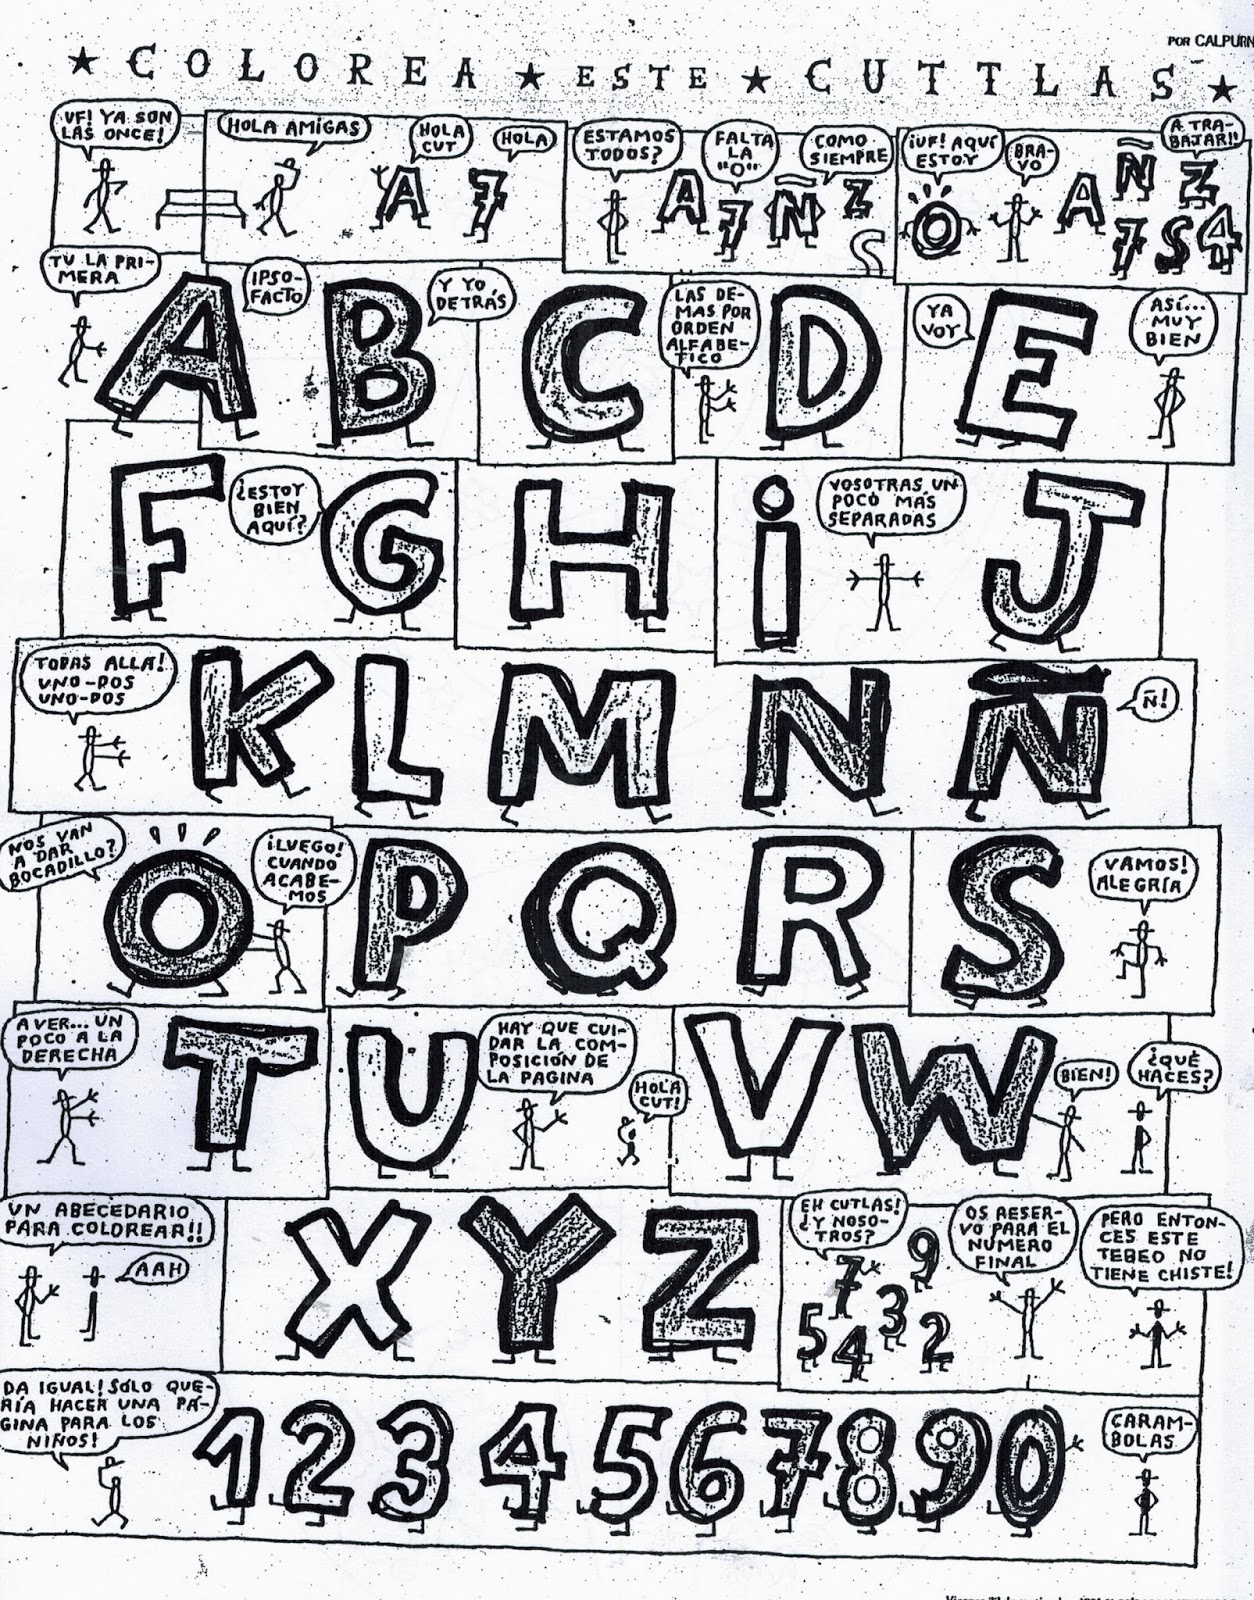 POR CALPURN
★ COLOREA ★ ESTE ★ CUTTLAS ★
UF! YA SON
LAS ONCE!
HOLA AMIGAS
HOLA
CUT
HOLA
A
7
ESTAMOS
TODOS?
FALTA
LA
"O"
COMO
SIEMPRE
A
7
Ñ
Z
S
¡UF! AQUÍ
ESTOY
BRA-
VO
A TRA-
BAJAR!!
O
A
Ñ
Z
7
S
4
TU LA PRI-
MERA
A
IPSO-
FACTO
B
Y YO
DETRÁS
C
LAS DE-
MAS POR
ORDEN
ALFABE-
TICO
D
YA
VOY
E
ASÍ...
MUY
BIEN
F
¿ESTOY
BIEN
AQUÍ?
G
H
i
VOSOTRAS UN
POCO MÁS
SEPARADAS
J
TODAS ALLA!
UNO-DOS
UNO-DOS
K
L
M
N
Ñ
Ñ!
NOS VAN
A DAR
BOCADILLO?
O
¡LUEGO!
CUANDO
ACABE-
MOS
P
Q
R
S
VAMOS!
ALEGRÍA
A VER... UN
POCO A LA
DERECHA
T
U
HAY QUE CUI-
DAR LA COM-
POSICIÓN DE
LA PAGINA
HOLA
CUT!
V
W
BIEN!
¿QUÉ
HACES?
UN ABECEDARIO
PARA COLOREAR!!
AAH
X
Y
Z
EH CUTLAS!
¿Y NOSO-
TROS?
7
9
5
4
3
2
OS RESER-
VO PARA EL
NÚMERO
FINAL
PERO ENTON-
CES ESTE
TEBEO NO
TIENE CHISTE!
DA IGUAL! SÓLO QUE-
RÍA HACER UNA PÁ-
GINA PARA LOS
NIÑOS!
1 2 3 4 5 6 7 8 9 0
CARAM-
BOLAS